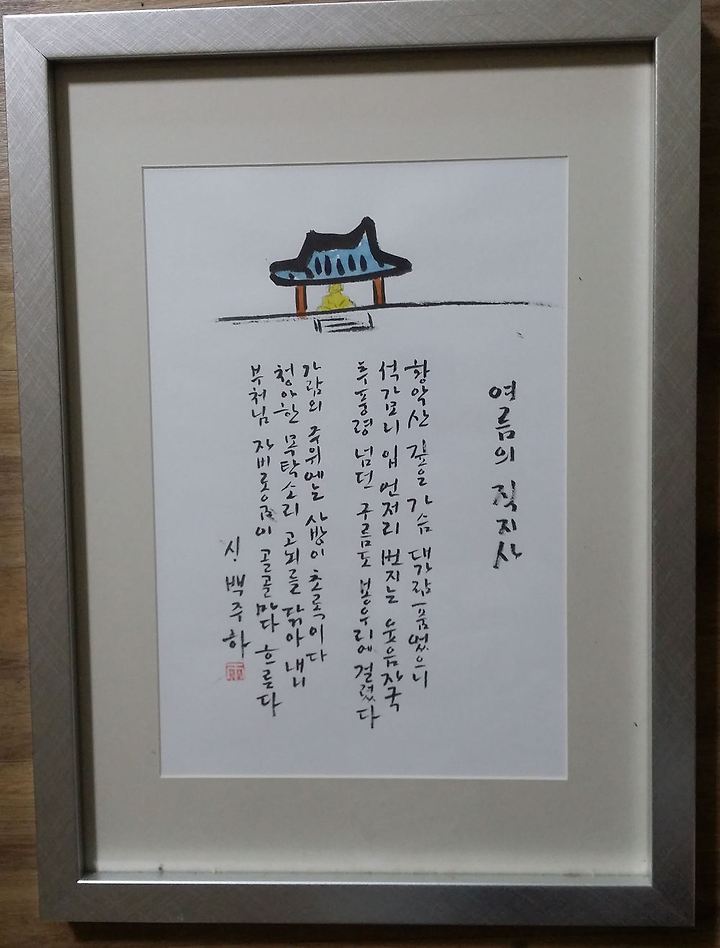 여름의 직지사
황악산 깊은 가슴 대가람 품었으니
석가모니 입 언저리 번지는 웃음자국
추풍령 넘던 구름도 봉우리에 걸렸다
가람의 주위에는 사방이 초록이다
청아한 목탁소리 고뇌를 닦아 내니
부처님 자비로움이 골골마다 흐른다
시 백주하